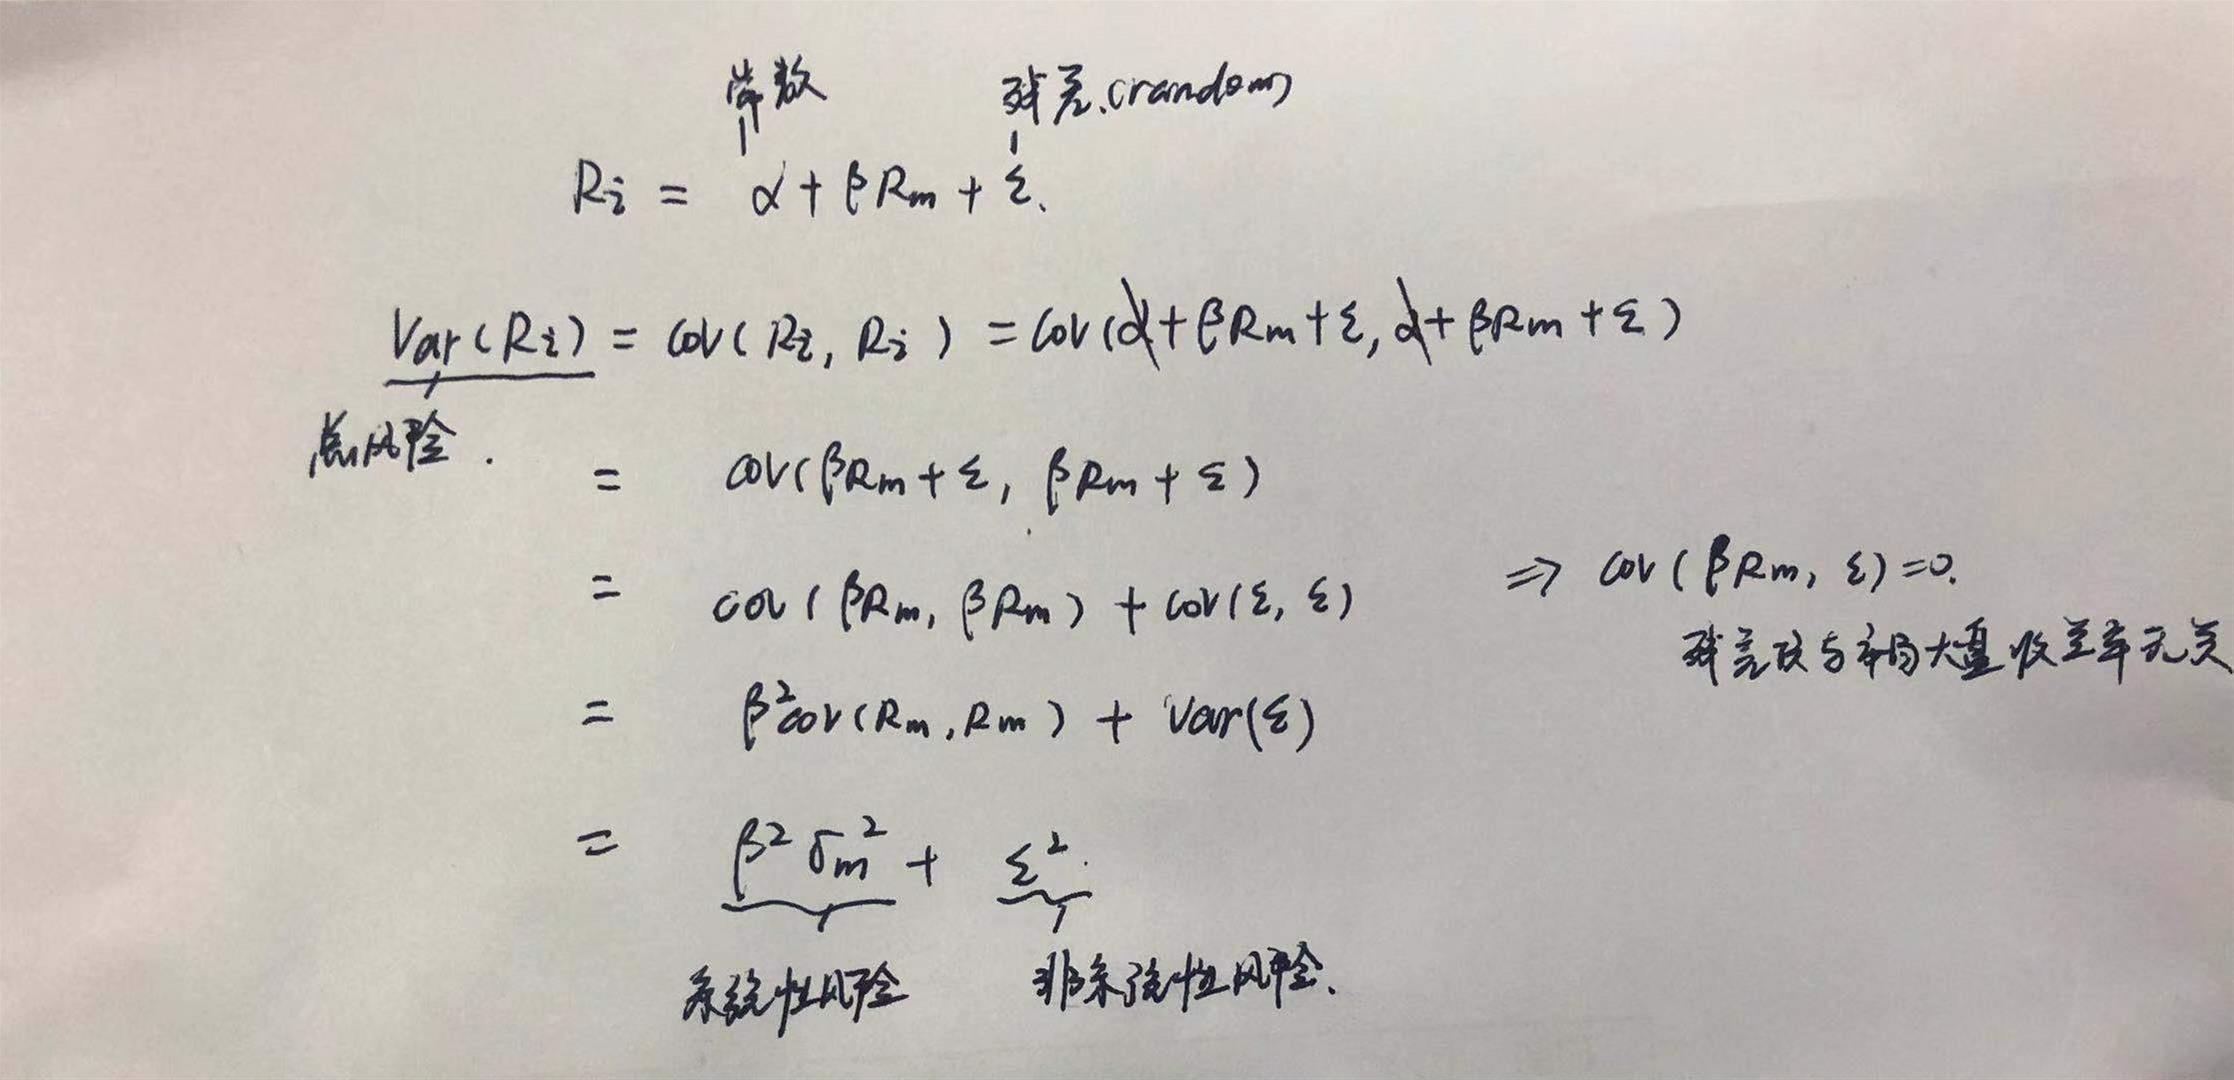 常数 残差.(random)
Ri = α + βRm + ε.
Var(Ri) = cov(Ri, Ri) = cov(α+βRm+ε, α+βRm+ε)
总风险.
= cov(βRm+ε, βRm+ε)
= cov(βRm, βRm) + cov(ε, ε) ⇒ cov(βRm, ε)=0.
残差项与市场大盘收益率无关
= β²cov(Rm, Rm) + Var(ε)
= β²σm² + ε².
系统性风险 非系统性风险.